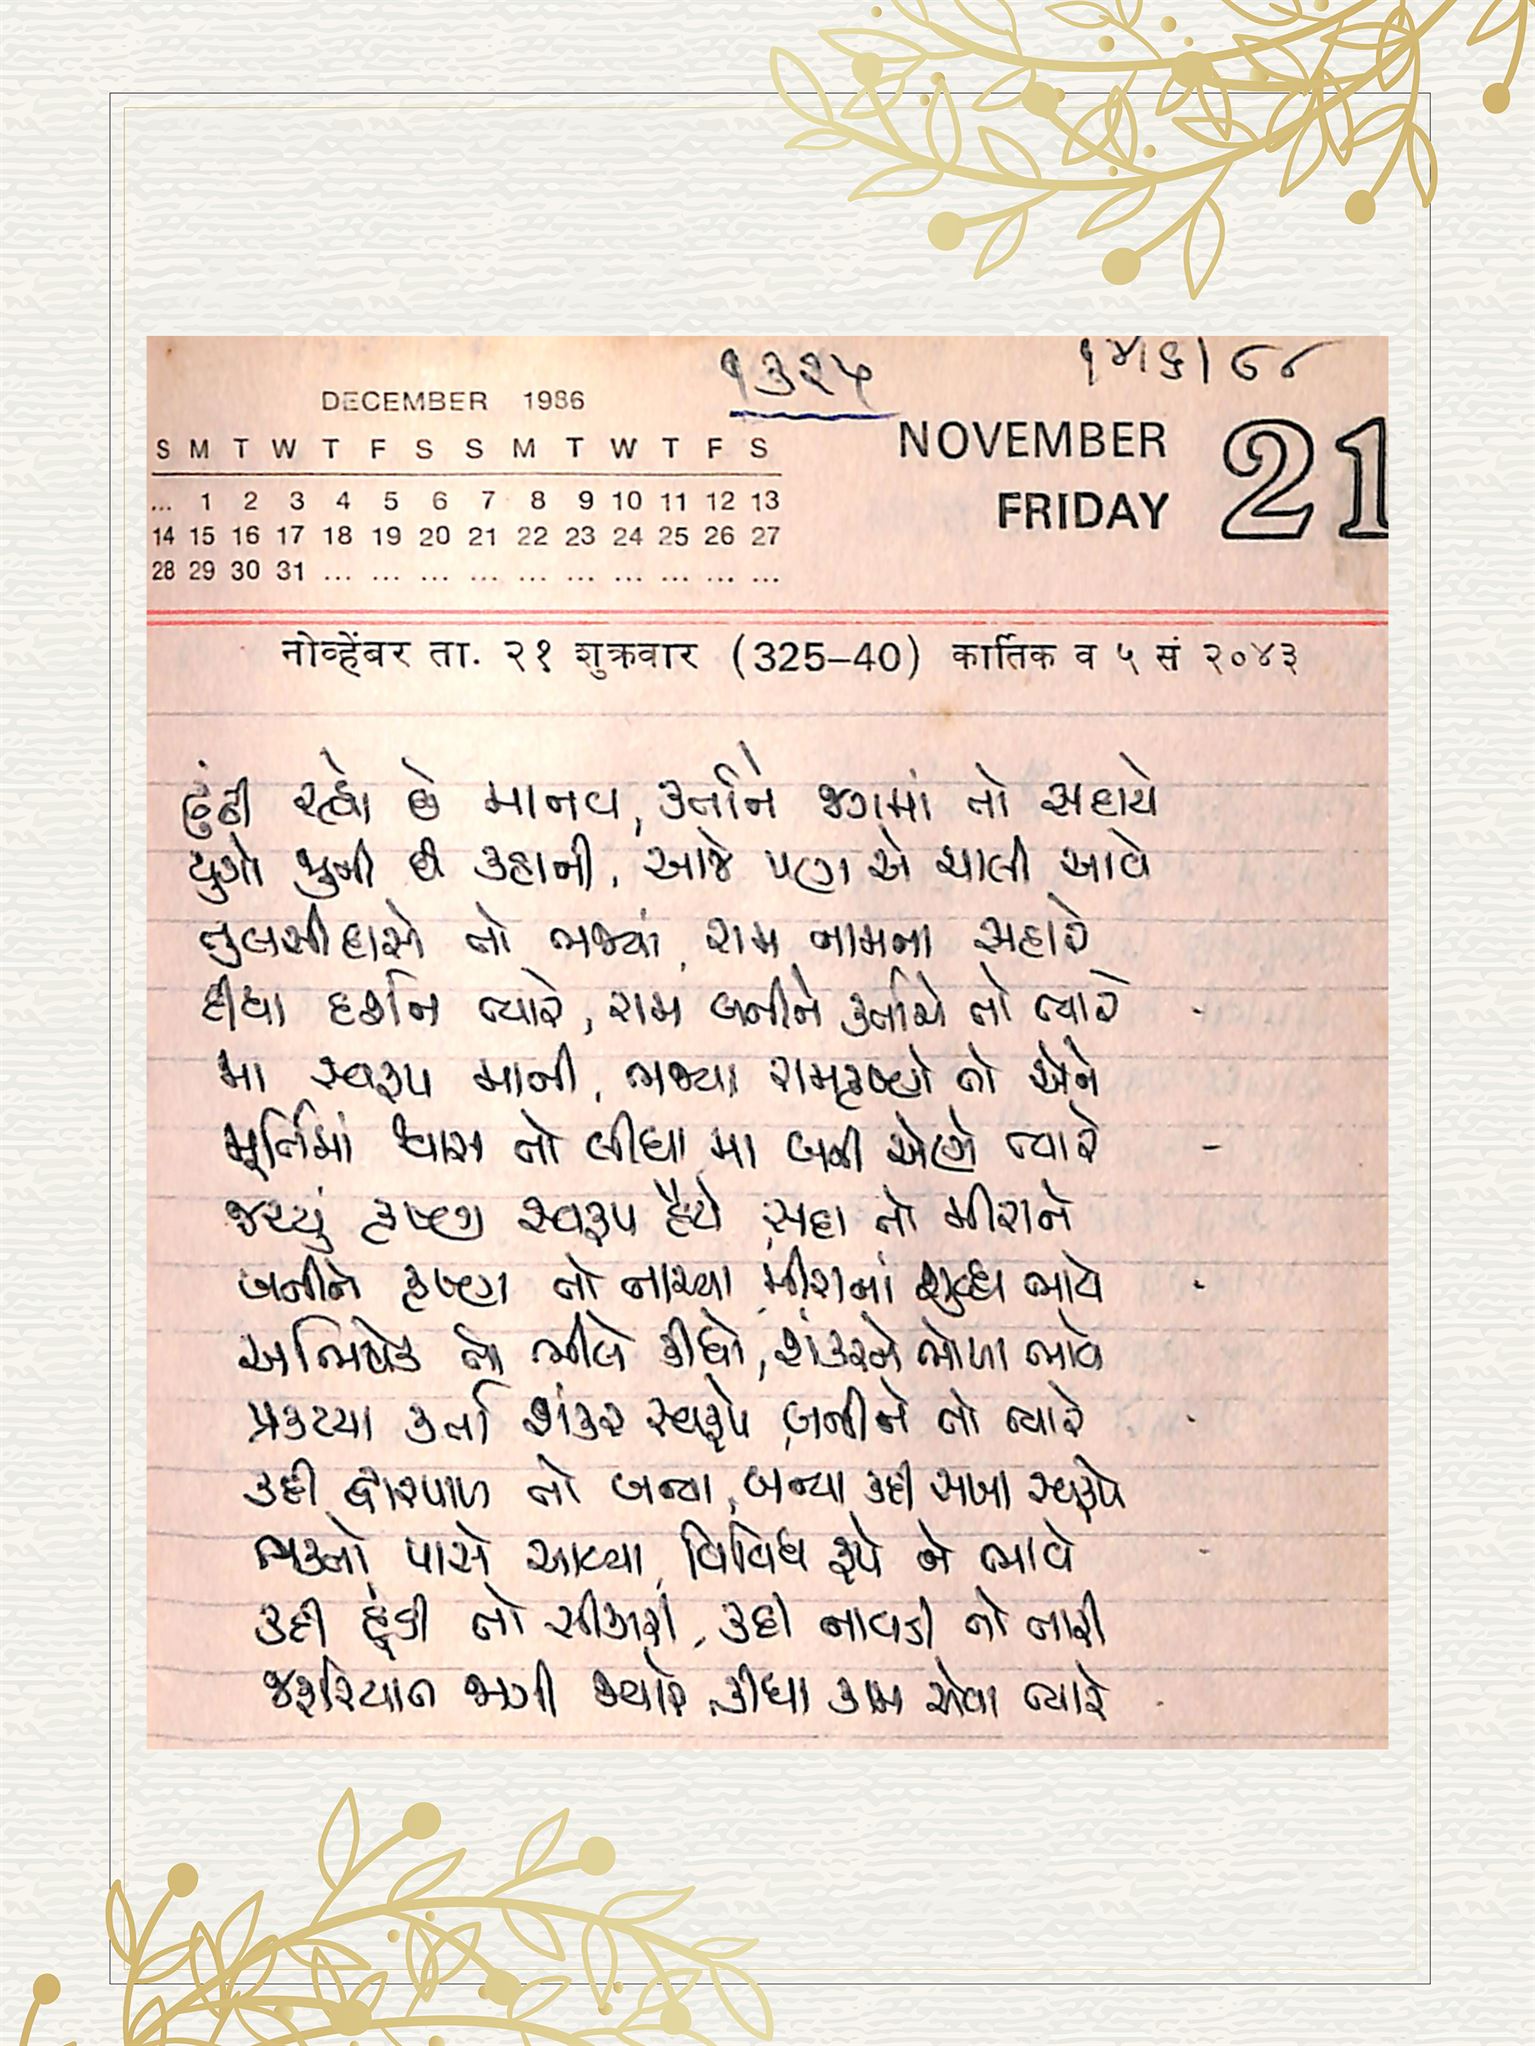 ૧૩૨૫
DECEMBER 1986
NOVEMBER 21
FRIDAY
S M T W T F S S M T W T F S
... 1 2 3 4 5 6 7 8 9 10 11 12 13
14 15 16 17 18 19 20 21 22 23 24 25 26 27
28 29 30 31 ... ... ... ... ... ... ... ... ... ...
नोव्हेंबर ता. २१ शुक्रवार (325-40) कार्तिक व ५ सं २०४३
ઢૂંઢી રહ્યો છે માનવ, કર્તાને જગમાં તો સદાયે
યુગો જુની છે કહાની, આજે પણ એ ચાલી આવે
તુલસીદાસે તો ભજ્યાં, રામ નામના સહારે
દીધા દર્શન ત્યારે, રામ બનીને કર્તાએ તો ત્યારે -
મા સ્વરૂપ માની, ભજ્યા રામકૃષ્ણે તો એને
મૂર્તિમાં શ્વાસ તો લીધા, મા બની એણે ત્યારે -
જચ્યું કૃષ્ણ સ્વરૂપ હૈયે, સદા તો મીરાને
બનીને કૃષ્ણ તો નાચ્યા, મીરાનાં શુદ્ધ ભાવે -
અભિષેક તો ભીલે કીધો, શંકરને ભોળા ભાવે
પ્રકટયા કર્તા શંકર સ્વરૂપે, બનીને તો ત્યારે -
કદી દ્વારપાળ તો બન્યા, બન્યા કદી સખા સ્વરૂપે
ભક્તો પાસે આવ્યા, વિવિધ રૂપે ને ભાવે -
કદી હૂંડી તો સીકારી, કદી નાવડી તો તારી
જરૂરિયાત જાગી ક્યારે, કીધા કામ એવા ત્યારે -